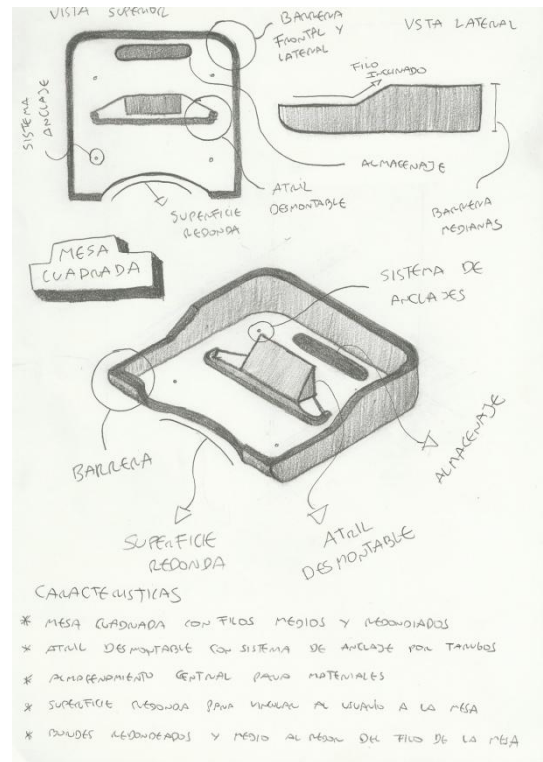 VISTA SUPERIOR
BARRERA
FRONTAL Y
LATERAL
VSTA LATERAL
FILO
INCLINADO
SISTEMA
ANCLAJE
ALMACENAJE
ATRIL
DESMONTABLE
SUPERFICIE
REDONDA
BARRERA
MEDIANAS
MESA
CUADRADA
SISTEMA DE
ANCLAJES
BARRERA
ALMACENAJE
SUPERFICIE
REDONDA
ATRIL
DESMONTABLE
CARACTERISTICAS
* MESA CUADRADA CON FILOS MEDIOS Y REDONDIADOS
* ATRIL DESMONTABLE CON SISTEMA DE ANCLAJE POR TARUGOS
* ALMACENAMIENTO CENTRAL PARA MATERIALES
* SUPERFICIE REDONDA PARA VINCULAR AL USUARIO A LA MESA
* REDONDEADOS Y MEDIO AL REDOR DEL FILO DE LA MESA